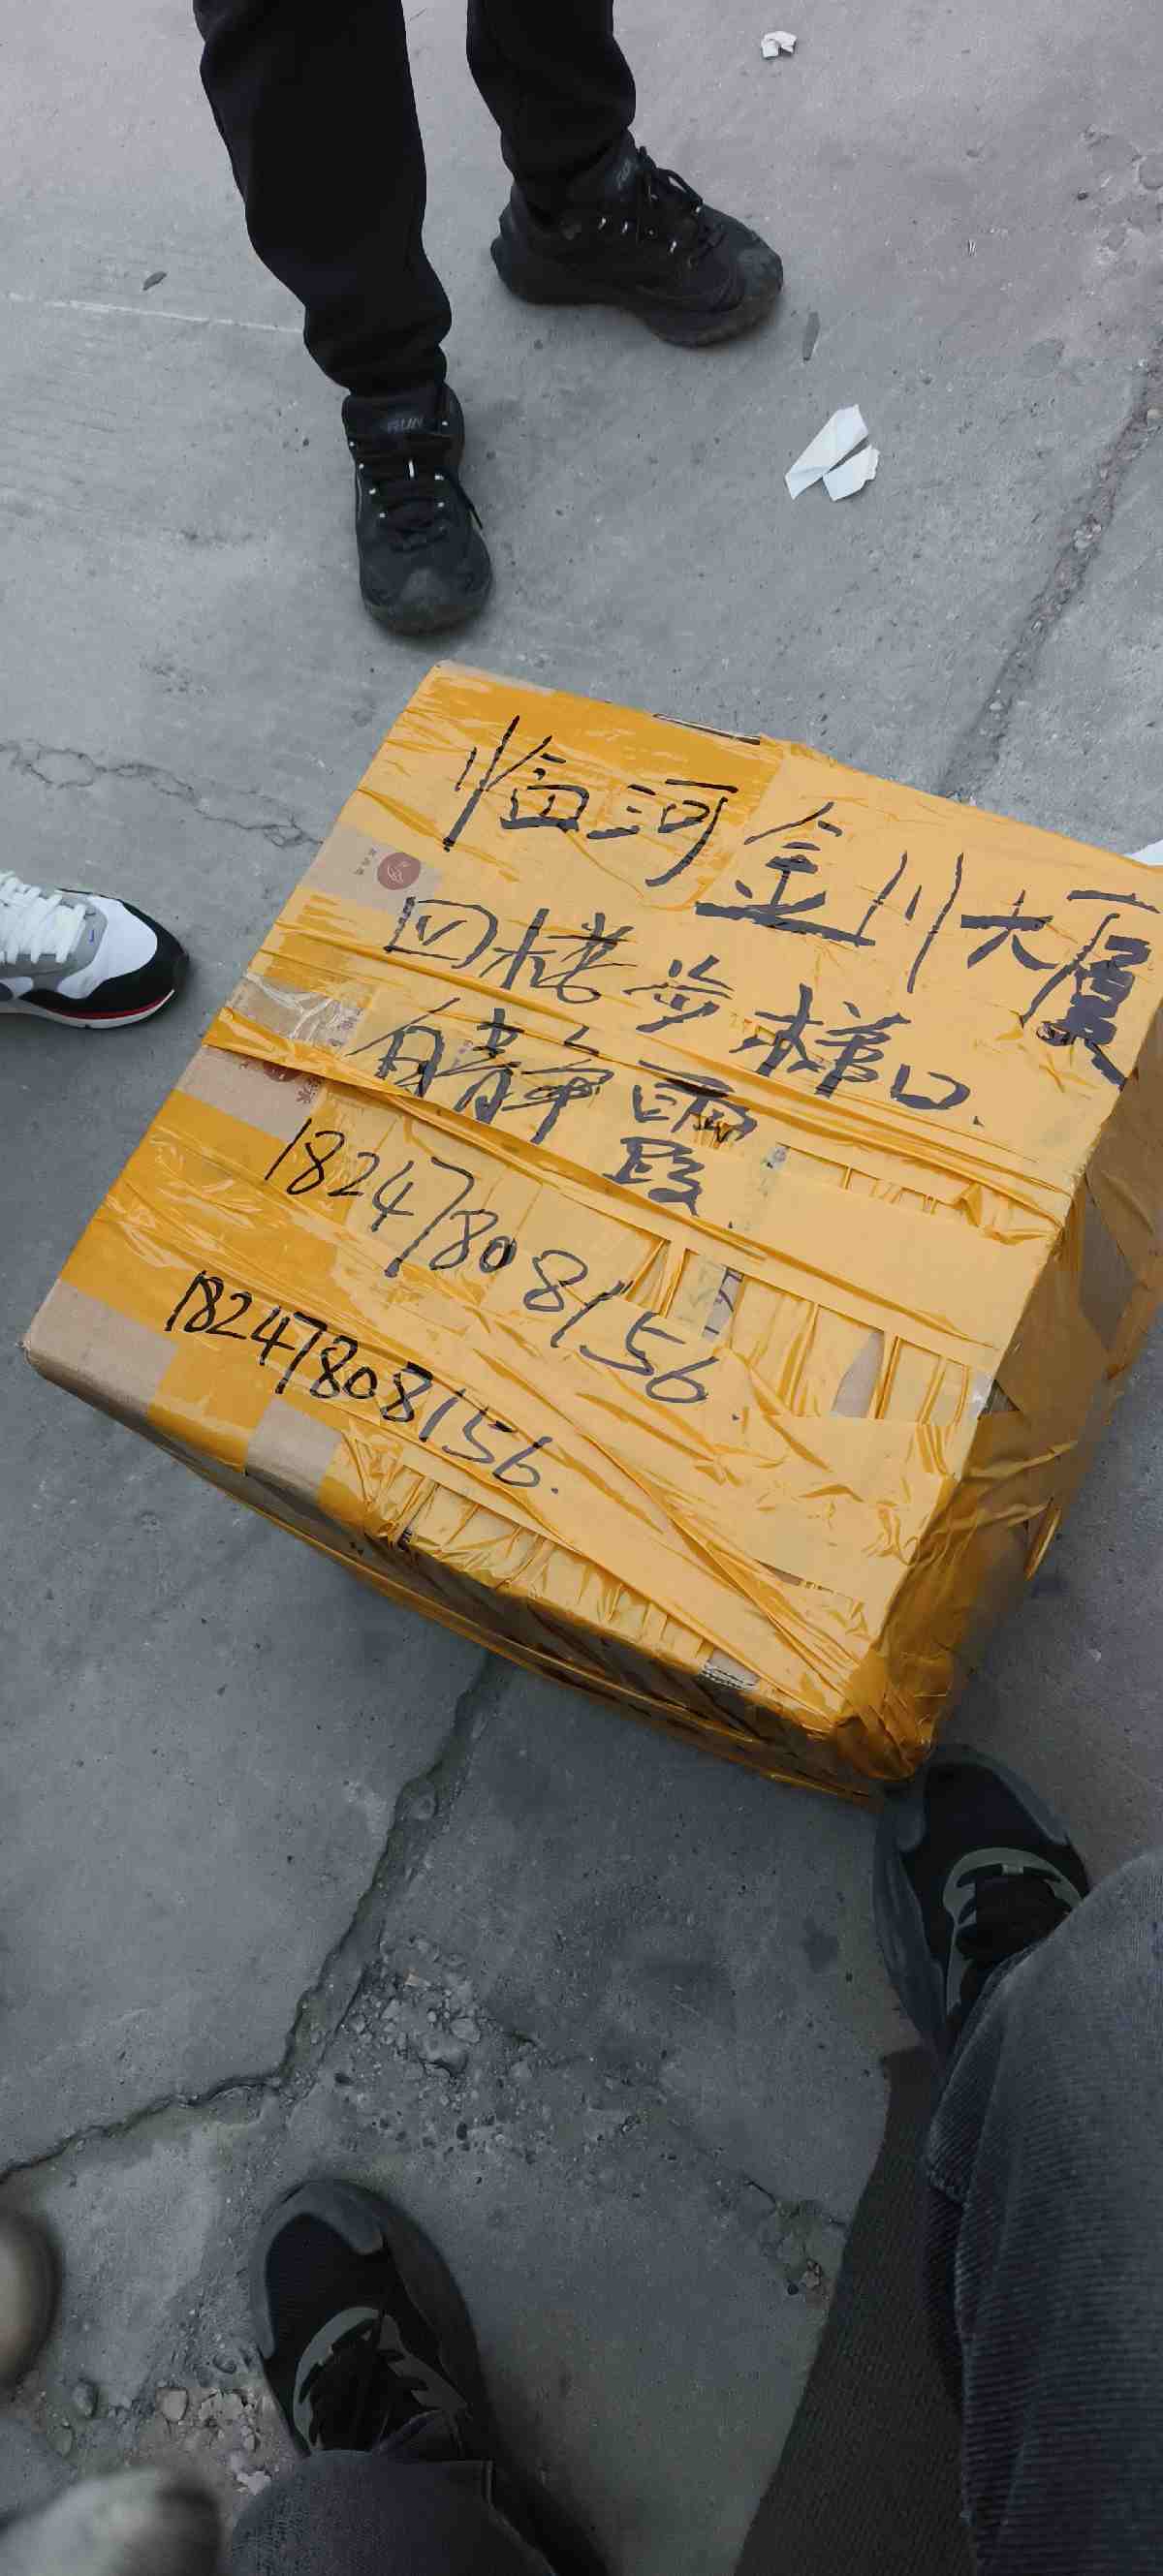 临河金川大厦
四楼步梯口.
白静霞.
18247808156.
18247808156.
RUN